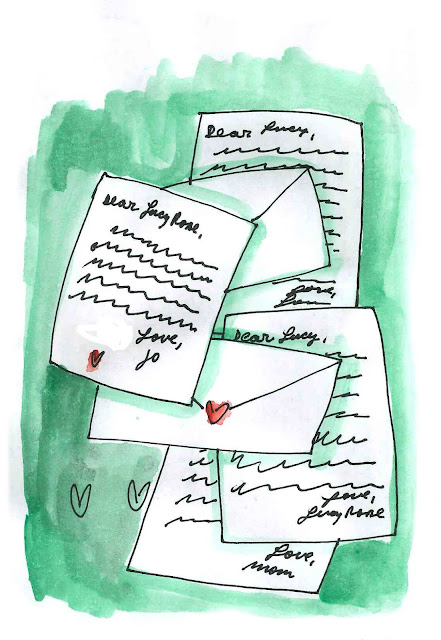 Dear Lucy,
Love,
Dear Lucy Rose,
Love,
Jo
Dear Lucy,
Love,
Lucy Rose
Love,
mom